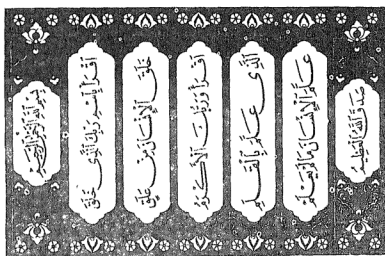 بِسْمِ اللهِ الرَّحْمٰنِ الرَّحِيمِ
اقْرَأْ بِاسْمِ رَبِّكَ الَّذِى خَلَقَ
خَلَقَ الْإِنْسَانَ مِنْ عَلَقٍ
اقْرَأْ وَرَبُّكَ الْأَكْرَمُ
الَّذِى عَلَّمَ بِالْقَلَمِ
عَلَّمَ الْإِنْسَانَ مَا لَمْ يَعْلَمْ
صَدَقَ اللهُ الْعَظِيمُ